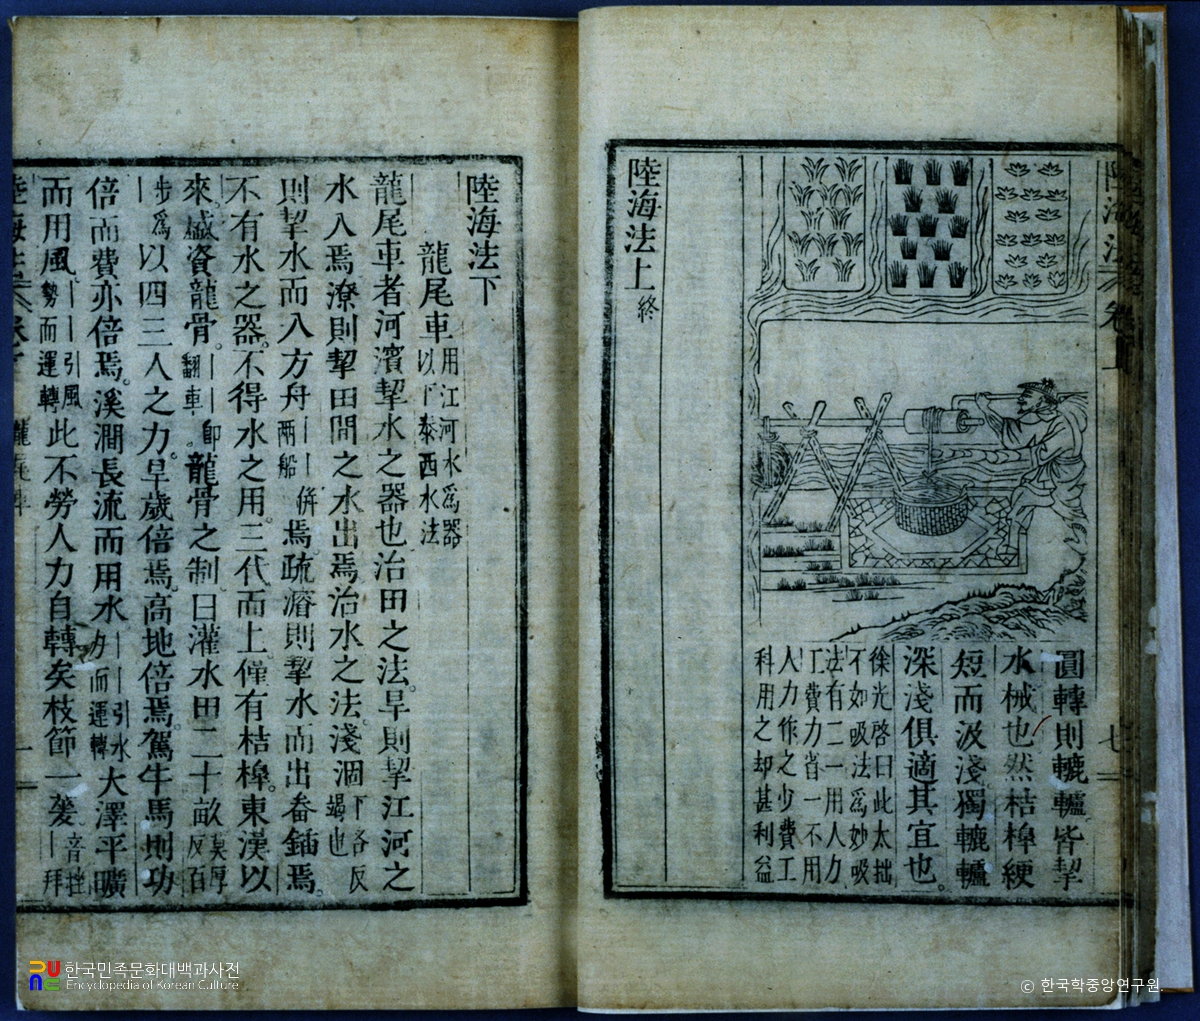 陸海法 卷上 七
圓轉則轆轤皆挈
水械也然桔橰綆
短而汲淺獨轆轤
深淺俱適其宜也。
徐光啓曰此太拙
不如吸法爲妙吸
法有二一用人力
工費力省一不用
人力作之少費工
科用之却甚利益
陸海法上 終
陸海法下
龍尾車 用江河水爲器以下泰西水法
龍尾車者河濱挈水之器也治田之法。旱則挈江河之
水入焉潦則挈田間之水出焉治水之法。淺涸下各反竭也
則挈水而入方舟｜｜倂兩船焉。疏濬則挈水而出畚鍤焉。
不有水之器。不得水之用。三代而上僅有桔橰。東漢以
來。盛資龍骨。｜｜卽翻車。龍骨之制曰灌水田二十畝莫厚反百
步爲以四三人之力。旱歲倍焉。高地倍焉。駕牛馬則功
倍而費亦倍焉。溪澗長流而用水｜｜引水力而運轉大澤平曠
而用風｜｜引風勢而運轉此不勞人力自轉矣枝節一蓌音挫｜拜
陸海法 卷下 龍尾車 一
한국민족문화대백과사전
Encyclopedia of Korean Culture
© 한국학중앙연구원.